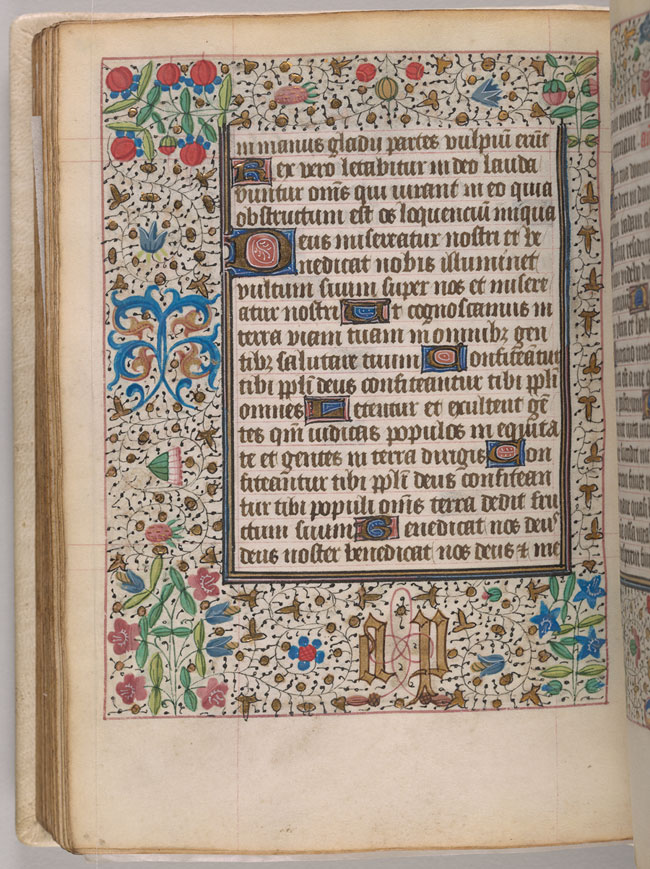 in manus gladii partes vulpiū erūt
Rex vero letabitur in deo lauda
buntur om̄s qui iurant in eo quia
obstructum est os loquencium iniqua
Deus misereatur nostri et be
nedicat nobis illuminet
vultum suum super nos et misere
atur nostri Ut cognoscamus in
terra viam tuam in omnibꝫ gen
tibꝫ salutare tuum Confiteātur
tibi ppl̄i deus confiteantur tibi ppl̄i
omnes Letentur et exultent gē
tes qm̄ iudicas populos in equita
te et gentes in terra dirigis Con
fiteantur tibi ppl̄i deus confitean
tur tibi populi om̄s terra dedit fru
ctum suum Benedicat nos deus
deus noster benedicat nos deus ⁊ me
a p